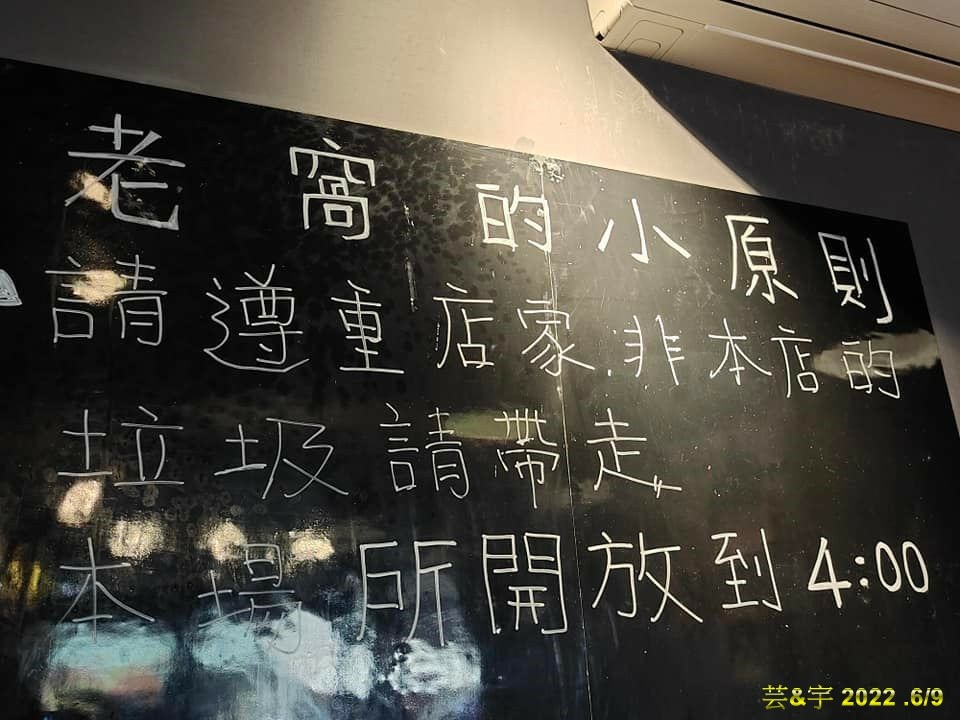 老窩的小原則
請遵重店家.非本店的
垃圾請帶走
本場所開放到4:00
芸&宇 2022 .6/9